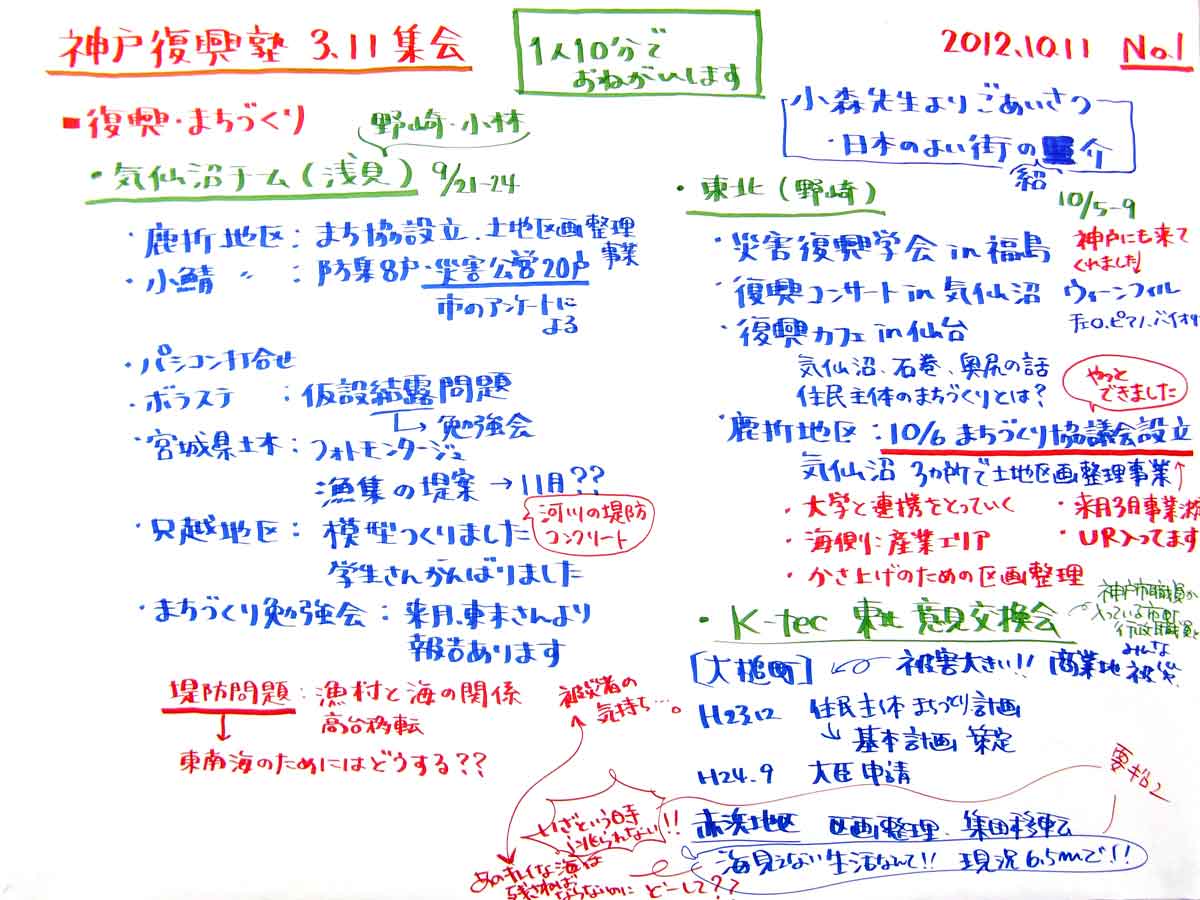 神戸復興塾 3.11集会
1人10分で
おねがいします
2012.10.11 No.1
小森先生よりごあいさつ
・日本のよい街の介
紹
■復興・まちづくり
野崎・小林
・気仙沼チーム(浅見) 9/21-24
・鹿折地区:まち協設立、土地区画整理
事業
・小鯖 〃 :防集8戸・災害公営20戸
市のアンケートに
よる
・パシコン打合せ
・ボラステ :仮設結露問題
→勉強会
・宮城県土木:フォトモンタージュ
漁集の提案→11月??
・只越地区:模型つくりました
河川の堤防
コンクリート
学生さんがんばりました
・まちづくり勉強会:来月、東末さんより
報告あります
堤防問題:漁村と海の関係
高台移転
東南海のためにはどうする??
被災者の
気持ち…。
いざという時
に逃られない!!
あのキレイな海は
残さねば
ならないのに どーして??
・東北(野崎)
10/5-9
・災害復興学会in福島
神戸にも来て
くれました!
・復興コンサートin気仙沼 ウィーンフィル
チェロ、ピアノ、バイオリ
・復興カフェin仙台
気仙沼、石巻、奥尻の話
住民主体のまちづくりとは?
やっと
できました
・鹿折地区:10/6 まちづくり協議会設立
気仙沼 3か所で土地区画整理事業↑
・大学と連携をとっていく
・来月3日事業
・海側に産業エリア
・UR入ってます
・かさ上げのための区画整理
・K-tec 東北意見交換会
神戸市職員が
入っている市町
行政職員と
みんな
[大槌町] 被害大きい!! 商業地 被災
H23.12 住民主体 まちづくり計画
→基本計画 策定
H24.9 大臣申請
赤浜地区 区画整理 集団移転
海見えない生活なんて!! 現況6.5mで!!